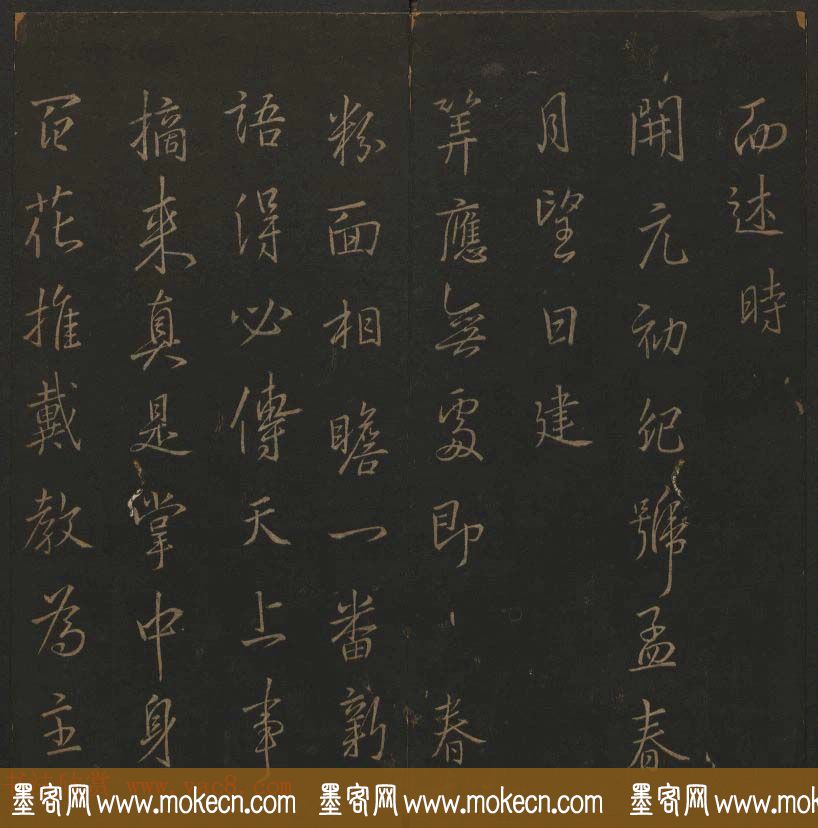 而述時
開元初紀號孟春
月望日建
筭應無處即春
粉面相瞻一番新
語得必傳天上事
摘來真是掌中身
百花推戴教為主
www.yac8.com
墨客网 www.mokecn.com 墨客网 www.mokecn.com 墨客网 www.mokecn.com